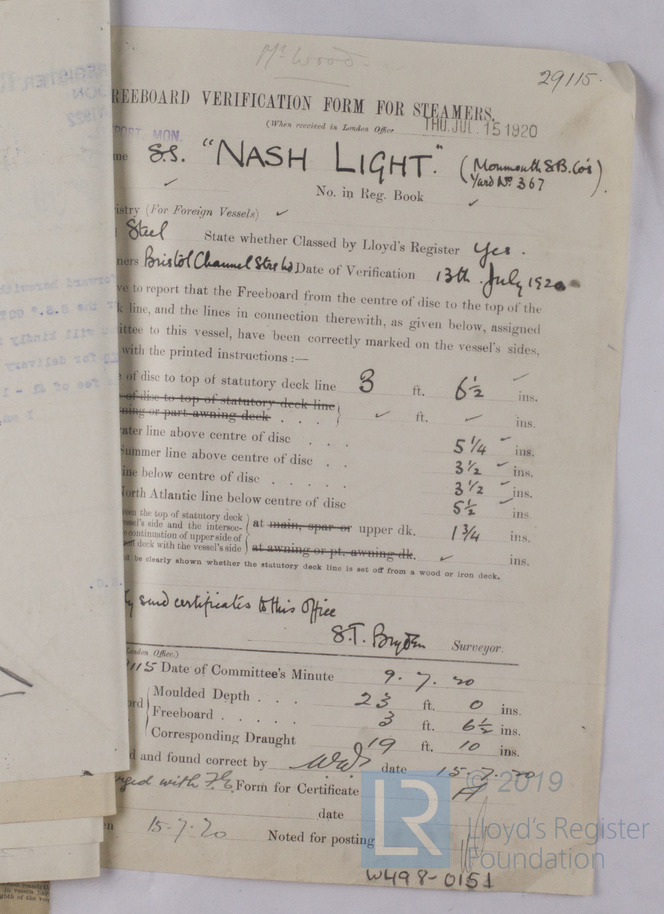 Mr Wood
29115.
REEBOARD VERIFICATION FORM FOR STEAMERS.
(When received in London Office THU. JUL. 15 1920
PORT, MON.
me S.S. "NASH LIGHT." (Monmouth S.B. Co's
Yard No. 367).
No. in Reg. Book
istry (For Foreign Vessels)
Steel State whether Classed by Lloyd's Register Yes.
ners Bristol Channel Strs Ld Date of Verification 13th July 1920
ve to report that the Freeboard from the centre of disc to the top of the
k line, and the lines in connection therewith, as given below, assigned
mittee to this vessel, have been correctly marked on the vessel's sides,
with the printed instructions :—
of disc to top of statutory deck line 3 ft. 6½ ins.
of disc to top of statutory deck line
ning or part awning deck . . . ft. — ins.
ater line above centre of disc . . . 5¼ ins.
ummer line above centre of disc . . 3½ ins.
ine below centre of disc . . . . . 3½ ins.
North Atlantic line below centre of disc 5½ ins
een the top of statutory deck
essel's side and the intersec-
continuation of upper side of
deck with the vessel's side
at main, spar or upper dk. 1¾ ins.
at awning or pt. awning dk. ins.
be clearly shown whether the statutory deck line is set off from a wood or iron deck.
send certificates to this Office
S.T. Bryden Surveyor.
London Office.)
9115 Date of Committee's Minute 9.7.20
Moulded Depth . . . 23 ft. 0 ins.
Freeboard . . . . . 3 ft. 6½ ins.
Corresponding Draught 19 ft. 10 ins.
d and found correct by date 15.7.20
with Form for Certificate
date
15.7.20 Noted for posting
© 2019
LR
Lloyd's Register
Foundation
W498-0151